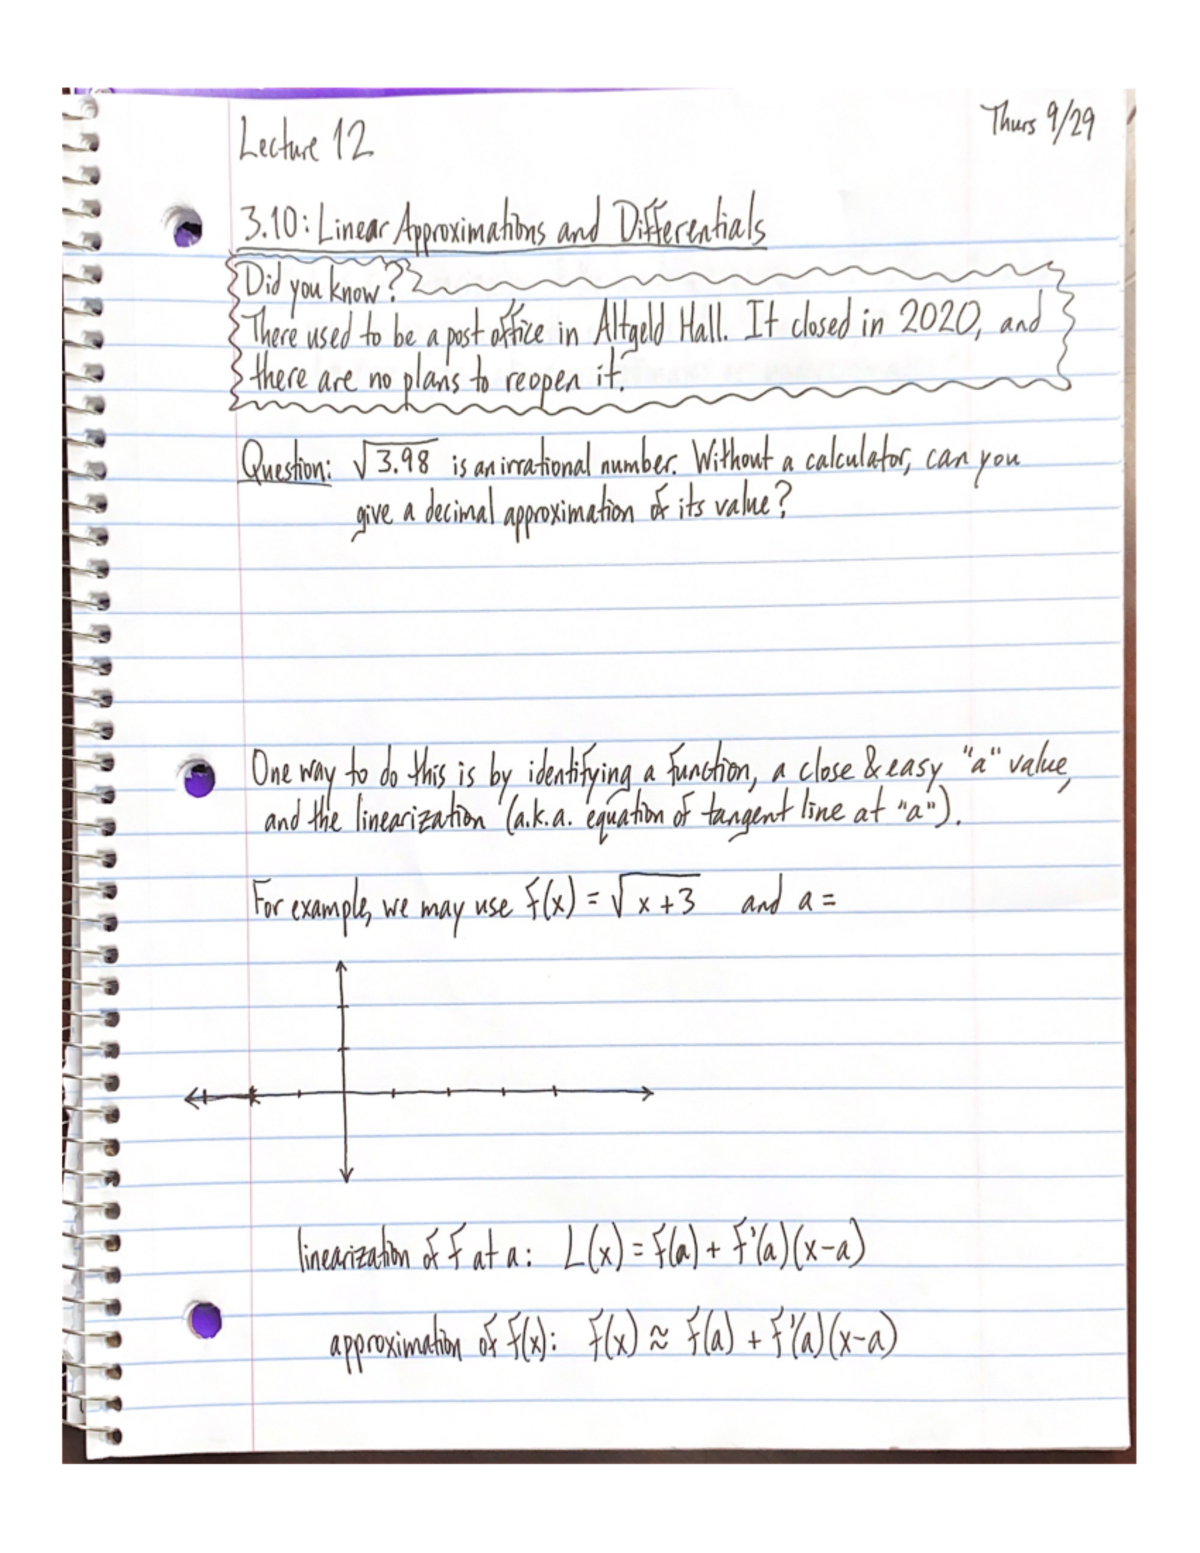 Thurs 9/29
Lecture 12
3.10: Linear Approximations and Differentials
Did you know?
There used to be a post office in Altgeld Hall. It closed in 2020, and
there are no plans to reopen it.
Question: √3.98 is an irrational number. Without a calculator, can you
give a decimal approximation of its value?
One way to do this is by identifying a function, a close & easy "a" value,
and the linearization (a.k.a. equation of tangent line at "a").
For example, we may use f(x) = √x+3 and a =
linearization of f at a: L(x) = f(a) + f'(a)(x-a)
approximation of f(x): f(x) ≈ f(a) + f'(a)(x-a)